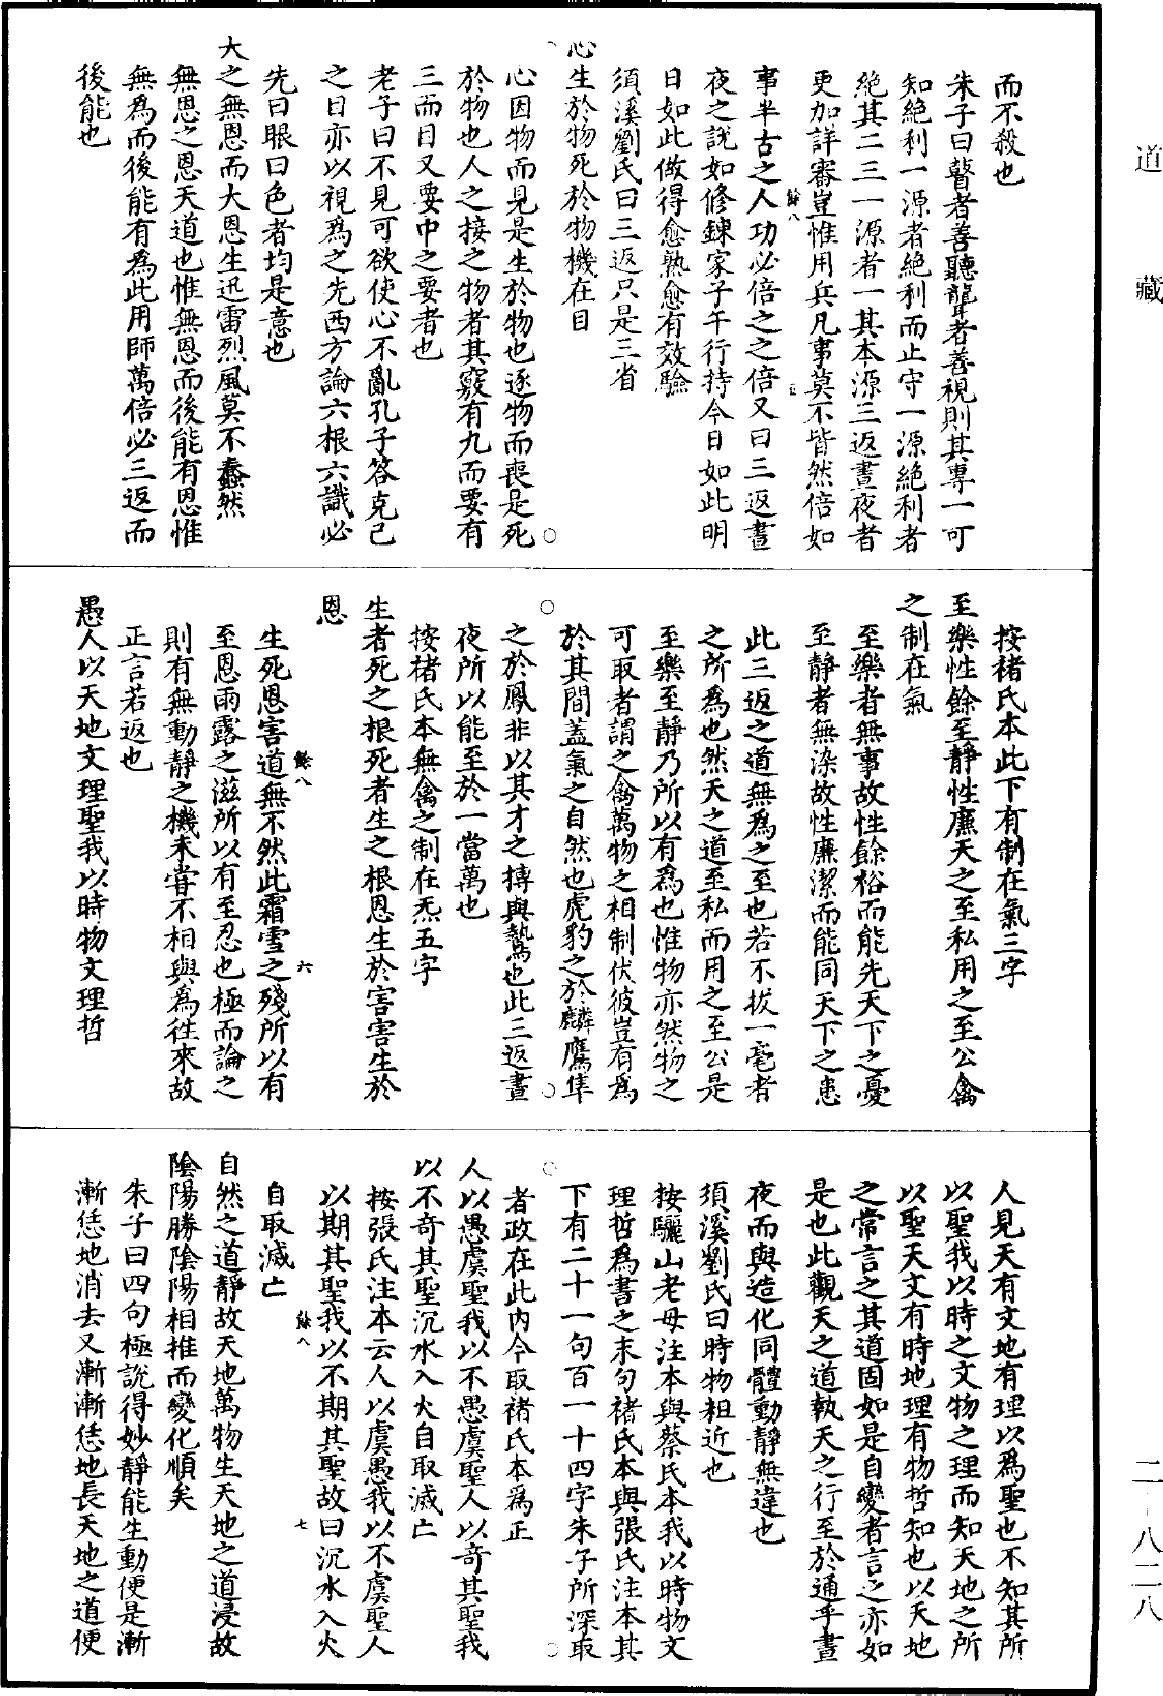 道藏
二-八二八
而不殺也
朱子曰瞽者善聽聾者善視則其專一可
知絕利一源者絕利而止守一源絕利者
絕其二三一源者一其本源三返晝夜者
更加詳審豈惟用兵凡事莫不皆然倍如
餘八
五
事半古之人功必倍之之倍又曰三返晝
夜之說如修鍊家子午行持今日如此明
日如此做得愈熟愈有效驗
須溪劉氏曰三返只是三省
心生於物死於物機在目
心因物而見是生於物也逐物而喪是死
於物也人之接之物者其竅有九而要有
三而目又要中之要者也
老子曰不見可欲使心不亂孔子答克己
之目亦以視爲之先西方論六根六識必
先曰眼曰色者均是意也
天之無恩而大恩生迅雷烈風莫不蠢然
無恩之恩天道也惟無恩而後能有恩惟
無爲而後能有爲此用師萬倍必三返而
後能也
按褚氏本此下有制在氣三字
至樂性餘至靜性廉天之至私用之至公禽
之制在氣
至樂者無事故性餘裕而能先天下之憂
至靜者無染故性廉潔而能同天下之患
此三返之道無爲之至也若不拔一毫者
之所爲也然天之道至私而用之至公是
至樂至靜乃所以有爲也惟物亦然物之
可取者謂之禽萬物之相制伏彼豈有爲
於其間蓋氣之自然也虎豹之於麟鷹隼
之於鳳非以其才之摶與鷙也此三返晝
夜所以能至於一當萬也
按褚氏本無禽之制在炁五字
生者死之根死者生之根恩生於害害生於
恩
餘八
六
生死恩害道無不然此霜雪之殘所以有
至恩雨露之滋所以有至忍也極而論之
則有無動靜之機未嘗不相與爲往來故
正言若返也
愚人以天地文理聖我以時物文理哲
人見天有文地有理以爲聖也不知其所
以聖我以時之文物之理而知天地之所
以聖天文有時地理有物哲知也以天地
之常言之其道固如是自變者言之亦如
是也此觀天之道執天之行至於通乎晝
夜而與造化同體動靜無違也
須溪劉氏曰時物粗近也
按驪山老母注本與蔡氏本我以時物文
理哲爲書之末句褚氏本與張氏注本其
下有二十一句百一十四字朱子所深取
者政在此內今取褚氏本爲正
人以愚虞聖我以不愚虞聖人以奇其聖我
以不奇其聖沉水入火自取滅亡
按張氏注本云人以虞愚我以不虞聖人
以期其聖我以不期其聖故曰沉水入火
餘八
七
自取滅亡
自然之道靜故天地萬物生天地之道浸故
陰陽勝陰陽相推而變化順矣
朱子曰四句極說得妙靜能生動便是漸
漸恁地消去又漸漸恁地長天地之道便